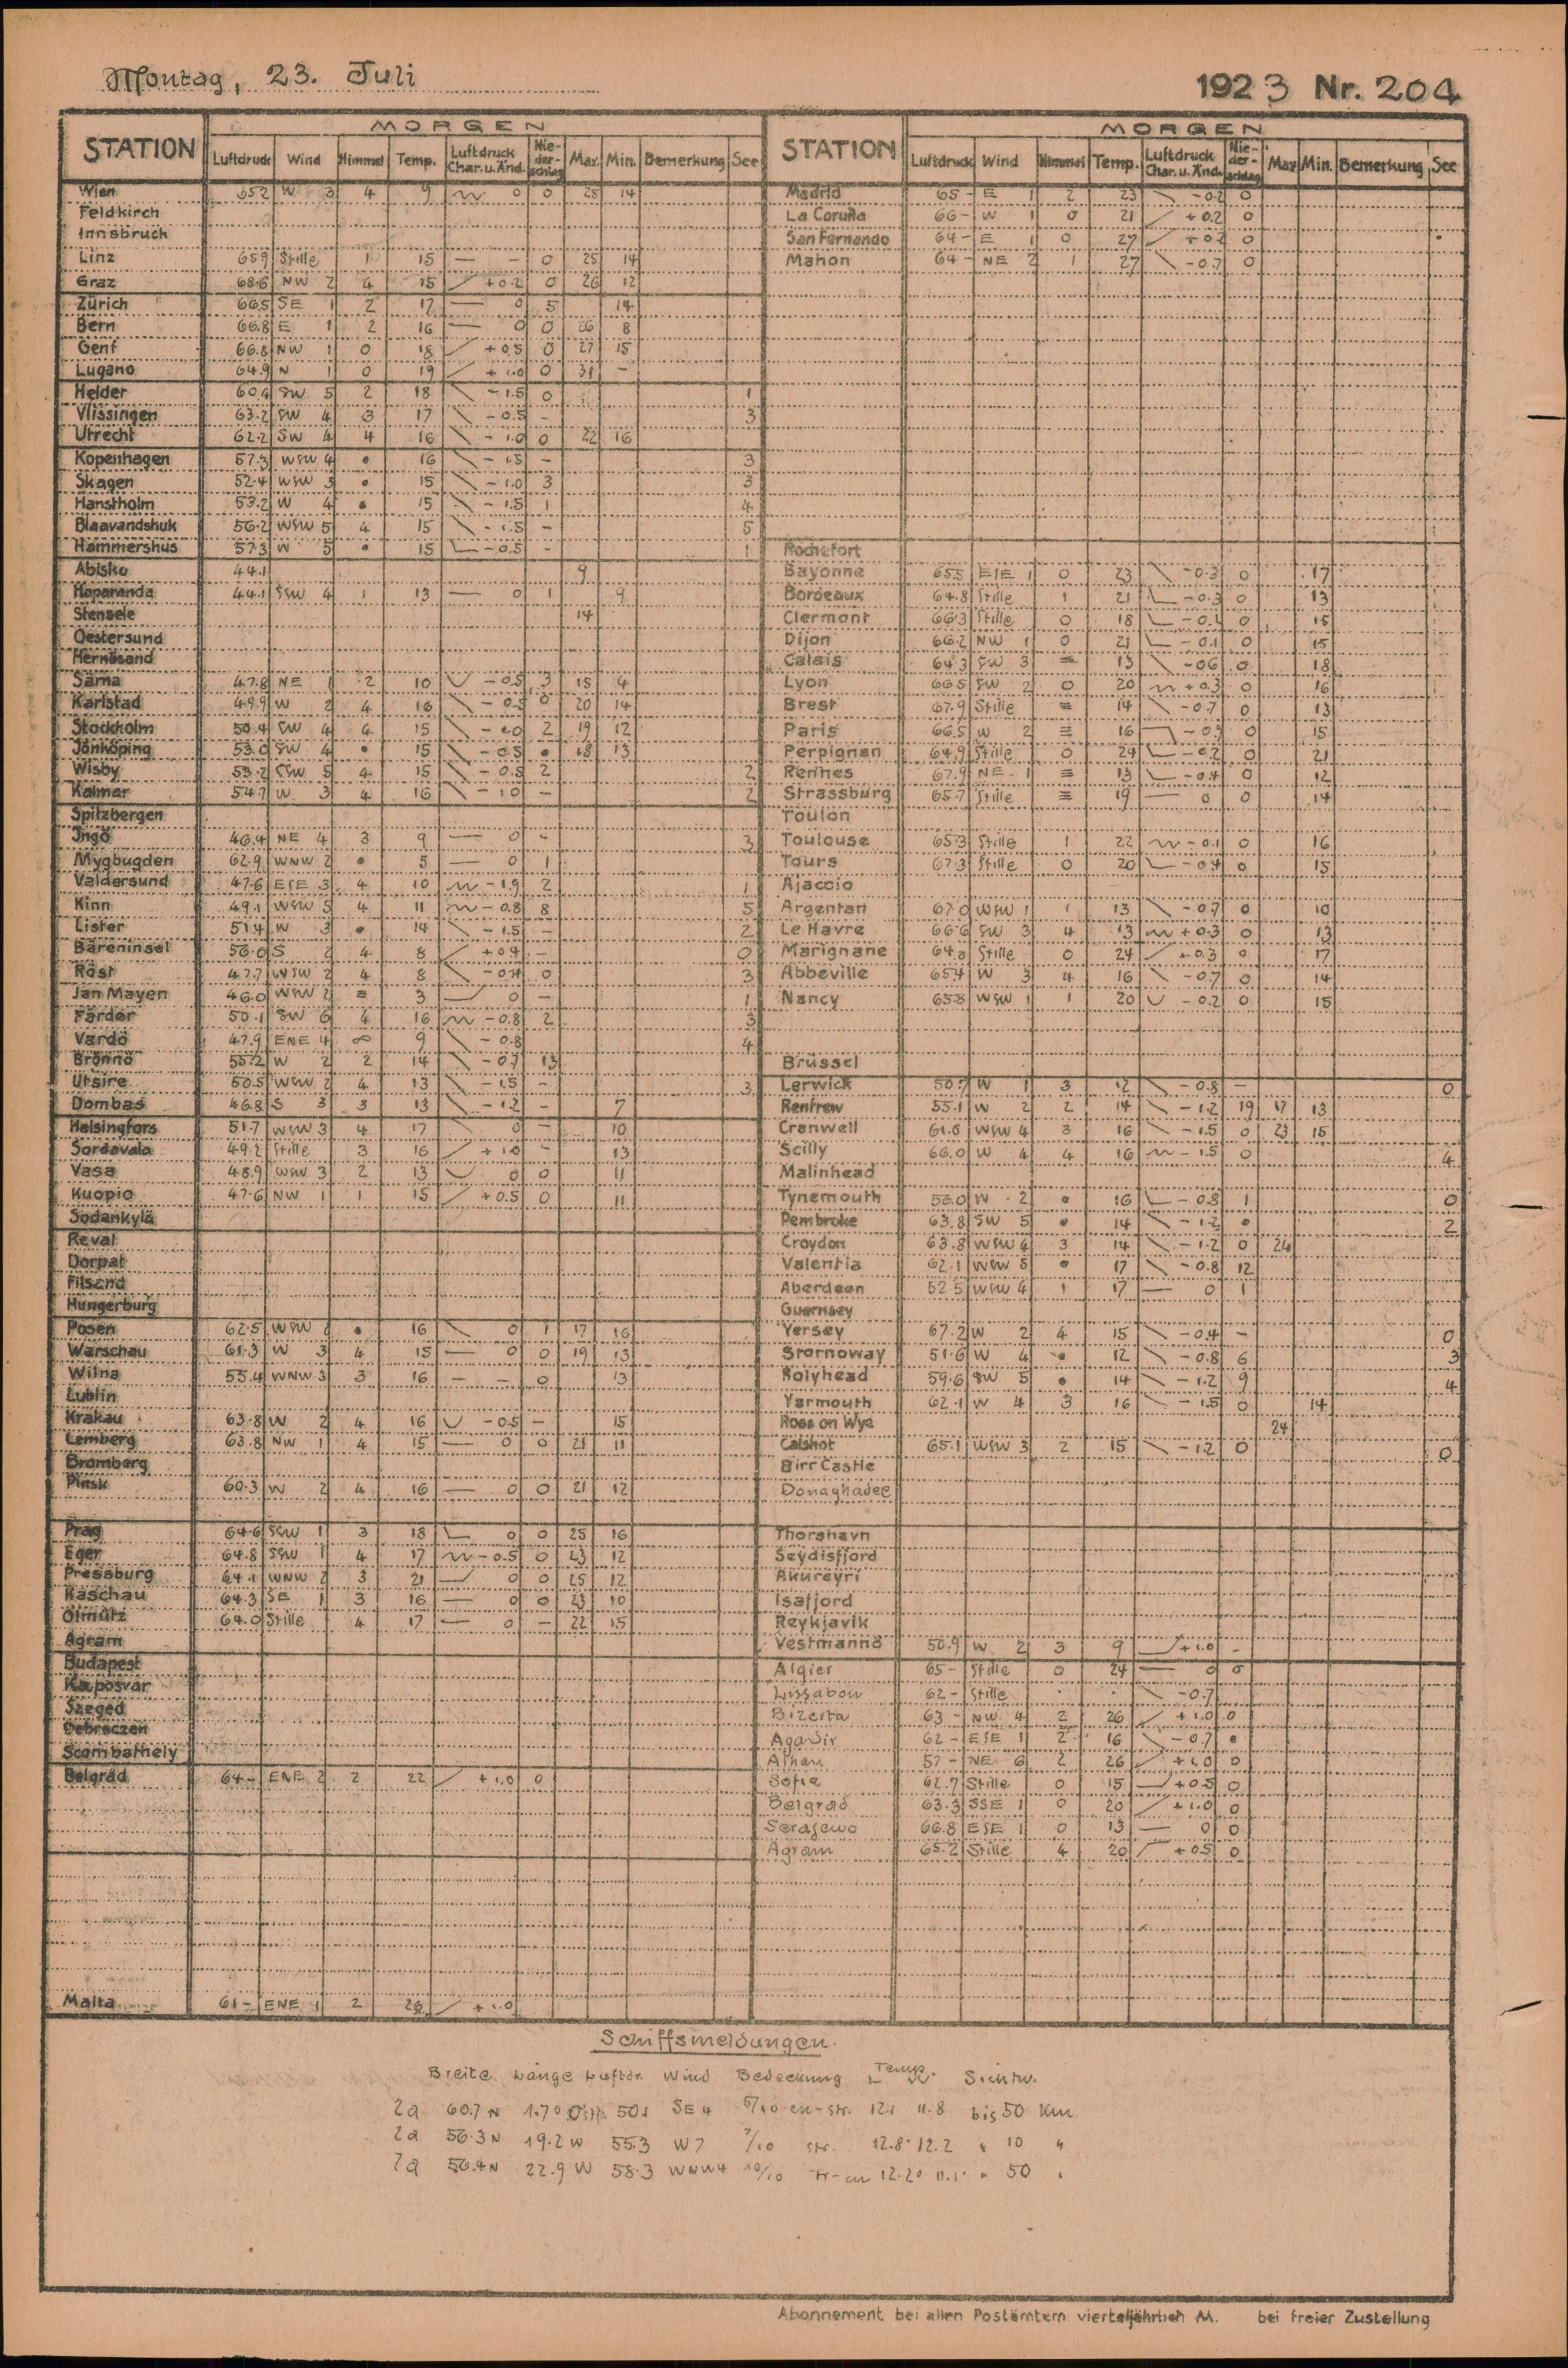 Montag, 23. Juli
1923 Nr. 204
STATION MORGEN
Luftdruck Wind Himmel Temp. Luftdruck Char. u. Änd. Nie-der-schlag Max. Min. Bemerkung See
Wien 65.2 W 3 4 9 0 0 25 14
Feldkirch
Innsbruck
Linz 65.9 Stille 1 15 — - 0 25 14
Graz 68.6 NW 2 4 15 +0.2 0 26 12
Zürich 66.5 SE 1 2 17 — 0 5 14
Bern 66.8 E 1 2 16 — 0 0 26 8
Genf 66.8 NW 1 0 18 +0.5 0 27 15
Lugano 64.9 N 1 0 19 +1.0 0 31 -
Helder 60.4 SW 5 2 18 -1.5 0 1
Vlissingen 63.2 SW 4 3 17 -0.5 - 3
Utrecht 62.2 SW 4 4 16 -1.0 0 22 16
Kopenhagen 57.3 WSW 4 • 16 -1.5 - 3
Skagen 52.4 WSW 3 • 15 -1.0 3 3
Hanstholm 53.2 W 4 • 15 -1.5 1 4
Blaavandshuk 56.2 WSW 5 4 15 -1.5 - 5
Hammershus 57.3 W 5 • 15 -0.5 - 1
Abisko 44.1 9
Haparanda 44.1 SSW 4 1 13 — 0 1 9
Stensele 14
Oestersund
Hernösand
Särna 47.8 NE 1 2 10 -0.5 3 15 4
Karlstad 49.9 W 2 4 16 -0.5 0 20 14
Stockholm 50.4 SW 4 4 15 -1.0 2 19 12
Jönköping 53.0 SW 4 • 15 -0.5 • 18 13
Wisby 53.2 SSW 5 4 15 -0.5 2 2
Kalmar 54.7 W 3 4 16 -1.0 - 2
Spitzbergen
Ingö 46.4 NE 4 3 9 — 0 - 3
Mygbugden 62.9 WNW 2 • 5 — 0 1
Valdersund 47.6 ESE 3 4 10 -1.9 2 1
Kinn 49.1 WSW 5 4 11 -0.8 8 5
Lister 51.4 W 3 • 14 -1.5 - 2
Bäreninsel 56.0 S 2 4 8 +0.4 - 0
Röst 47.7 WSW 2 4 8 -0.4 0 3
Jan Mayen 46.0 WSW 2 ≡ 3 0 - 1
Färder 50.1 SW 6 4 16 -0.8 2 3
Vardö 47.9 ENE 4 ∞ 9 -0.8 4
Brönnö 55.2 W 2 2 14 -0.7 13
Utsire 50.5 WSW 2 4 13 -1.5 - 3
Dombas 46.8 S 3 3 13 -1.2 - 7
Helsingfors 51.7 WSW 3 4 17 0 - 10
Sordavala 49.2 Stille 3 16 +1.0 - 13
Vasa 48.9 WSW 3 2 13 0 0 11
Kuopio 47.6 NW 1 1 15 +0.5 0 11
Sodankylä
Reval
Dorpat
Filsand
Hungerburg
Posen 62.5 WSW 2 • 16 0 1 17 16
Warschau 61.3 W 3 4 15 — 0 0 19 13
Wilna 55.4 WNW 3 3 16 — - 0 13
Lublin
Krakau 63.8 W 2 4 16 -0.5 - 15
Lemberg 63.8 NW 1 4 15 — 0 0 21 11
Bromberg
Pinsk 60.3 W 2 4 16 — 0 0 21 12
Prag 64.6 SSW 1 3 18 0 0 25 16
Eger 64.8 SSW 1 4 17 -0.5 0 23 12
Pressburg 64.1 WNW 2 3 21 0 0 25 12
Kaschau 64.3 SE 1 3 16 — 0 0 23 10
Olmütz 64.0 Stille 4 17 — 0 - 22 15
Agram
Budapest
Kaposvar
Szeged
Debreczen
Scombathely
Belgrad 64- ENE 2 2 22 +1.0 0
Malta 61- ENE 1 2 26 +1.0
STATION MORGEN
Luftdruck Wind Himmel Temp. Luftdruck Char. u. Änd. Nie-der-schlag Max Min. Bemerkung See
Madrid 65- E 1 2 23 -0.2 0
La Coruña 66- W 1 0 21 +0.2 0
San Fernando 64- E 1 0 27 +0.2 0
Mahon 64- NE 2 1 27 -0.7 0
Rochefort
Bayonne 65.5 ESE 1 0 23 -0.3 0 17
Bordeaux 64.8 Stille 1 21 -0.3 0 13
Clermont 66.3 Stille 0 18 -0.2 0 15
Dijon 66.2 NW 1 0 21 -0.1 0 15
Calais 64.3 SW 3 ≡ 13 -0.6 0 18
Lyon 66.5 SW 2 0 20 +0.3 0 16
Brest 67.9 Stille ≡ 14 -0.7 0 13
Paris 66.5 W 2 ≡ 16 0 15
Perpignan 64.9 Stille 0 24 -0.2 0 21
Rennes 67.9 NE 1 ≡ 13 -0.4 0 12
Strassburg 65.7 Stille ≡ 19 — 0 0 14
Toulon
Toulouse 65.3 Stille 1 22 -0.1 0 16
Tours 67.3 Stille 0 20 -0.4 0 15
Ajaccio
Argentan 67.0 WSW 1 1 13 -0.7 0 10
Le Havre 66.6 SW 3 4 13 +0.3 0 13
Marignane 64.2 Stille 0 24 +0.3 0 17
Abbeville 65.4 W 3 4 16 -0.7 0 14
Nancy 65.8 WSW 1 1 20 -0.2 0 15
Brüssel
Lerwick 50.7 W 1 3 12 -0.8 - 0
Renfrew 55.1 W 2 2 14 -1.2 19 17 13
Cranwell 61.0 WSW 4 3 16 -1.5 0 23 15
Scilly 66.0 W 4 4 16 -1.5 0 4
Malinhead
Tynemouth 56.0 W 2 • 16 -0.8 1 0
Pembroke 63.8 SW 5 • 14 -1.2 • 2
Croydon 63.8 WSW 4 3 14 -1.2 0 24
Valentia 62.1 WSW 5 • 17 -0.8 12
Aberdeen 52.5 WSW 4 1 17 — 0 1
Guernsey
Yersey 67.2 W 2 4 15 -0.4 - 0
Stornoway 51.6 W 4 • 12 -0.8 6 3
Holyhead 59.6 SW 5 • 14 -1.2 9 4
Yarmouth 62.1 W 4 3 16 -1.5 0 14
Ross on Wye 24
Calshot 65.1 WSW 3 2 15 -1.2 0 0
Birr Castle
Donaghadee
Thorshavn
Seydisfjord
Akureyri
Isafjord
Reykjavik
Vestmannö 50.9 W 2 3 9 +1.0 -
Algier 65- Stille 0 24 — 0 0
Lissabon 62- Stille . . -0.7
Bizerta 63- NW 4 2 26 +1.0 0
Agadir 62- ESE 1 2 16 -0.7 •
Athen 57- NE 6 2 26 +1.0 0
Sofia 62.7 Stille 0 15 +0.5 0
Belgrad 63.3 SSE 1 0 20 +1.0 0
Serajewo 66.8 ESE 1 0 13 — 0 0
Agram 65.2 Stille 4 20 +0.5 0
Schiffsmeldungen.
Breite Länge Luftdr. Wind Bedeckung Temp. L W. Sichtw.
2a 60.7 N 1.7° 50.1 SE 4 5/10 cu-str. 12.1 11.8 bis 50 Km
2a 56.3 N 19.2 W 55.3 W 7 7/10 str. 12.8 12.2 " 10 "
2a 56.4 N 22.9 W 58.3 WNW 4 10/10 12.2° 11.1° " 50 "
Abonnement bei allen Postämtern vierteljährlich M. bei freier Zustellung